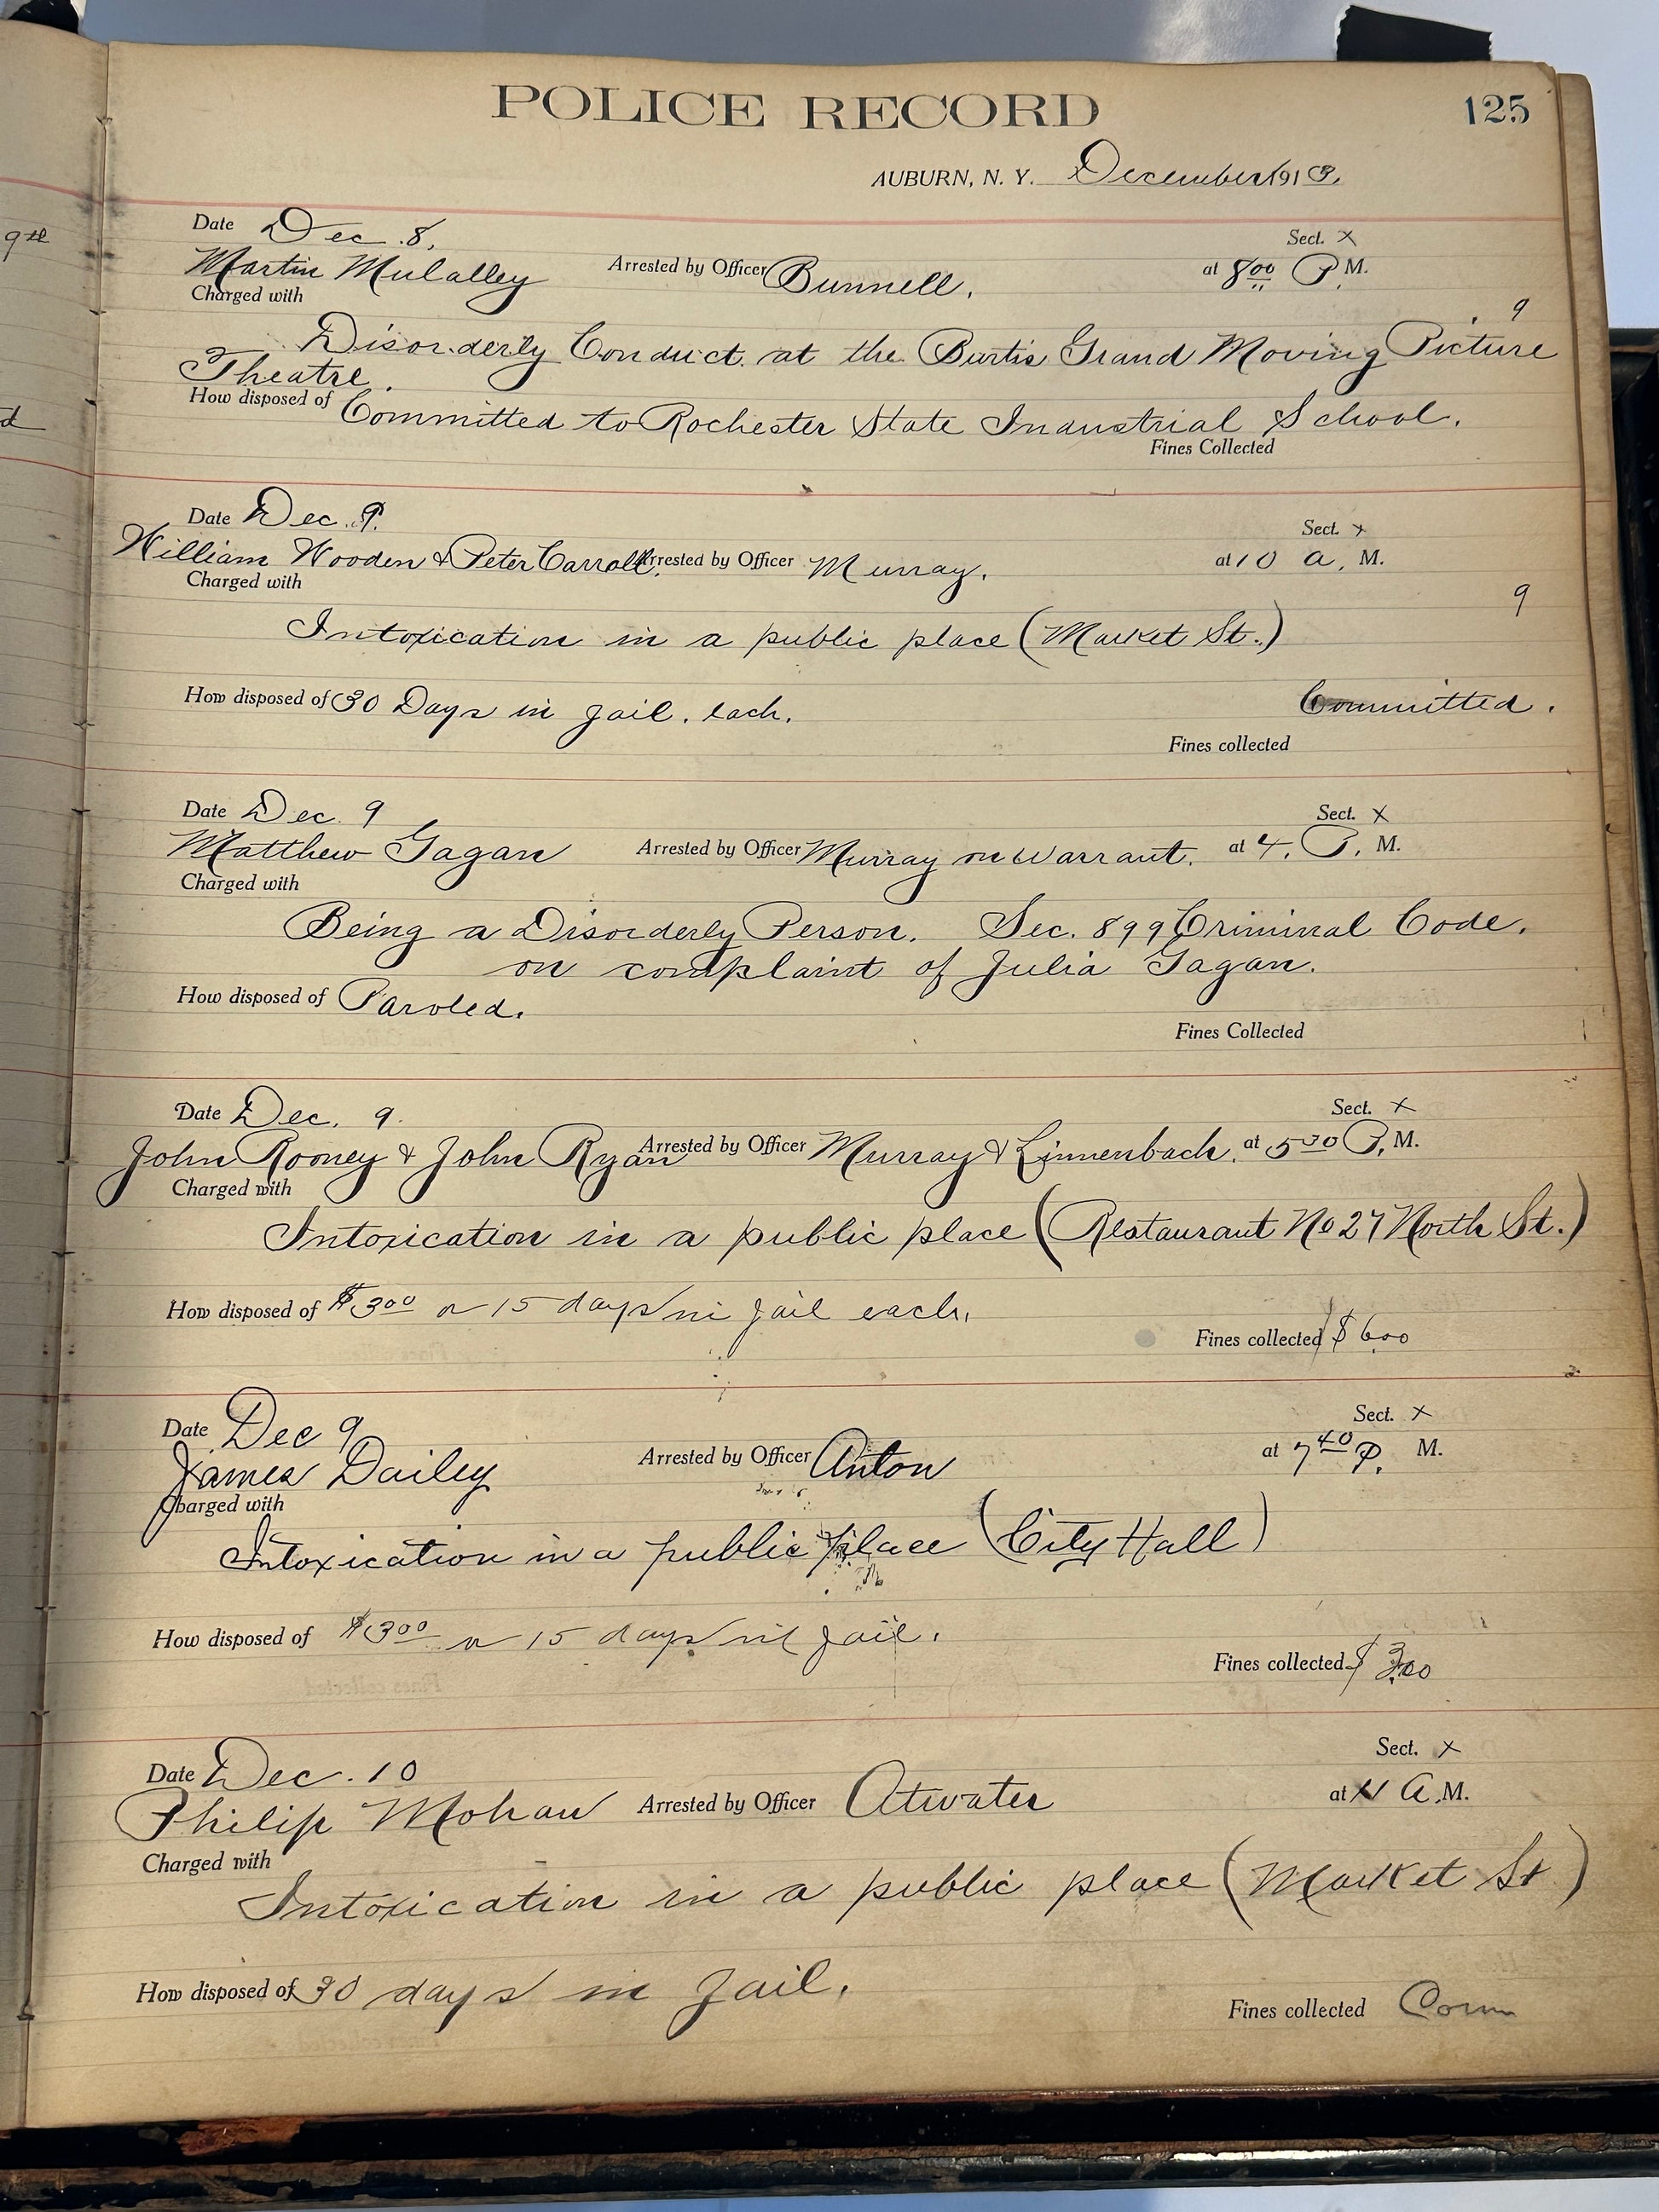 POLICE RECORD 125
AUBURN, N. Y. December 1913.
9th
Date Dec. 8, Sect. x
Martin Mulalley Arrested by Officer Bunnell. at 8 00 P. M.
Charged with
9
Disorderly Conduct. at the Burtis Grand Moving Picture
Theatre.
How disposed of Committed to Rochester State Industrial School.
Fines Collected
Date Dec. 9. Sect. x
William Wooden & Peter Carroll. Arrested by Officer Murray. at 10 a, M.
Charged with
9
Intoxication in a public place (Market St.)
How disposed of 30 Days in Jail. each. Committed.
Fines collected
Date Dec. 9 Sect. x
Matthew Gagan Arrested by Officer Murray on Warrant. at 4. P. M.
Charged with
Being a Disorderly Person. Sec. 899 Criminal Code.
on complaint of Julia Gagan.
How disposed of Paroled.
Fines Collected
Date Dec. 9. Sect. x
John Rooney & John Ryan Arrested by Officer Murray & Linnenbach. at 5 30 P. M.
Charged with
Intoxication in a public place (Restaurant No 27 North St.)
How disposed of $3 00 or 15 days in Jail each.
Fines collected $6.00
Date Dec 9 Sect. x
James Dailey Arrested by Officer Anton at 7 40 P. M.
Charged with
Intoxication in a public place (City Hall)
How disposed of $3 00 or 15 days in Jail.
Fines collected $3.00
Date Dec. 10 Sect. x
Philip Mohan Arrested by Officer Atwater at A.M.
Charged with
Intoxication in a public place (Market St)
How disposed of 30 days in Jail.
Fines collected Com